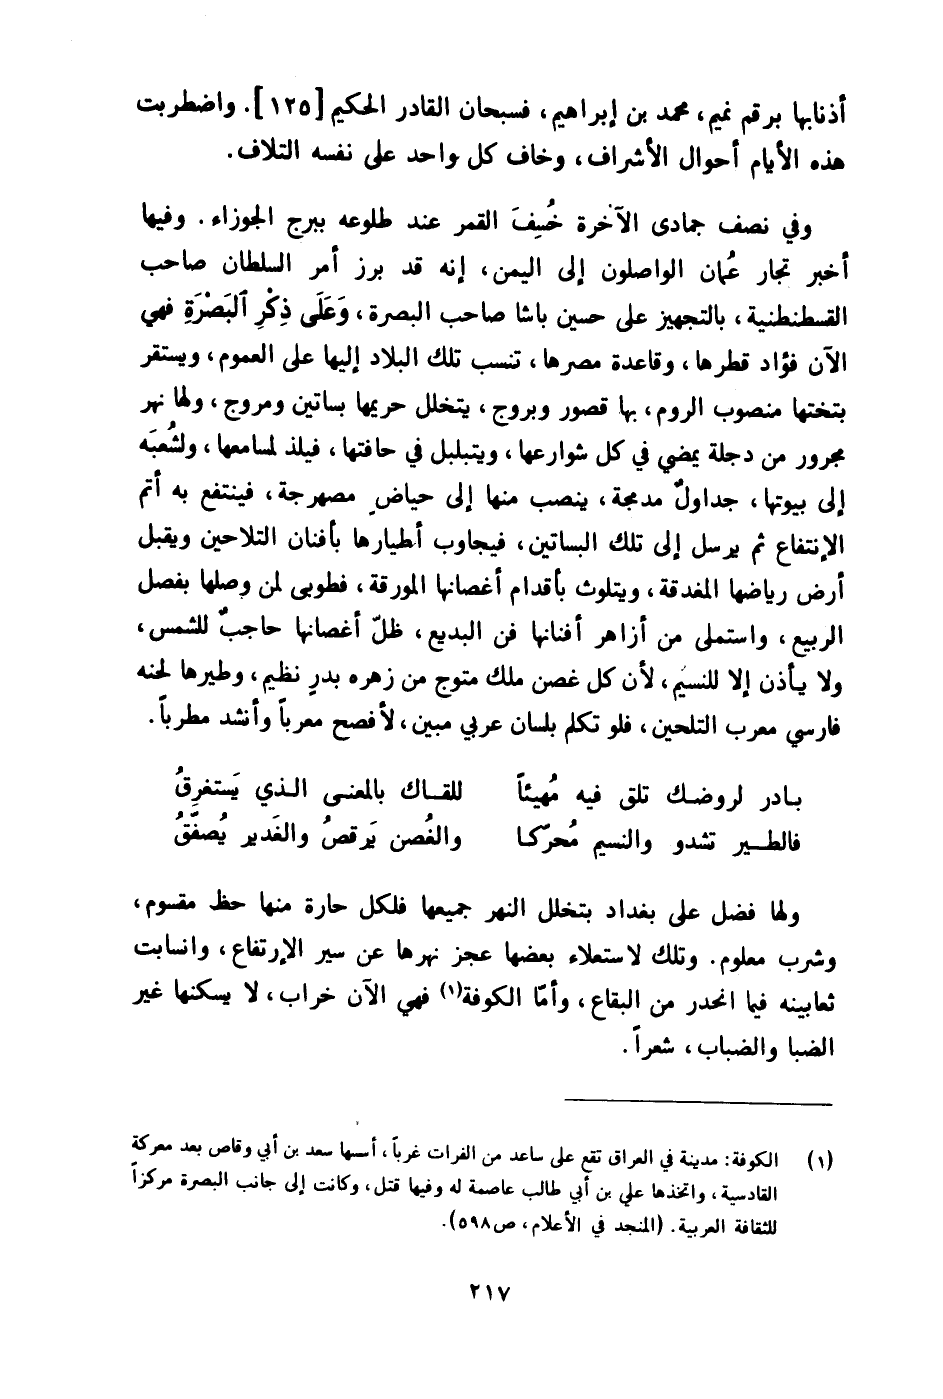 أذنابها برقم نميم، محمد بن إبراهيم، فسبحان القادر الحكيم [١٢٥]. واضطربت
هذه الأيام أحوال الأشراف، وخاف كل واحد على نفسه التلاف.
وفي نصف جمادى الآخرة خُسِفَ القمر عند طلوعه ببرج الجوزاء. وفيها
أخبر تجار عُمان الواصلون إلى اليمن، إنه قد برز أمر السلطان صاحب
القسطنطنية، بالتجهيز على حسين باشا صاحب البصرة، وَعَلَى ذِكْرِ ٱلبَصْرَةِ فهي
الآن فؤاد قطرها، وقاعدة مصرها، تنسب تلك البلاد إليها على العموم، ويستقر
بتختها منصوب الروم، بها قصور وبروج، يتخلل حريمها بساتين ومروج، ولها نهر
مجرور من دجلة يمضي في كل شوارعها، ويتبلبل في حافتها، فيلذ لمسامعها، ولشُعبَه
إلى بيوتها، جداولٌ مدمجة، ينصب منها إلى حياضٍ مصهرجة، فينتفع به أتم
الإنتفاع ثم يرسل إلى تلك البساتين، فيجاوب أطيارها بأفنان التلاحين ويقبل
أرض رياضها المغدقة، ويتلوث بأقدام أغصانها المورقة، فطوبى لمن وصلها بفصل
الربيع، واستملى من أزاهر أفنانها فن البديع، ظلّ أغصانها حاجبٌ للشمس،
ولا يأذن إلا للنسيم، لأن كل غصن ملك متوج من زهره بدرٍ نظيم، وطيرها لحنه
فارسي معرب التلحين، فلو تكلم بلسان عربي مبين، لأفصح معرباً وأنشد مطرباً.
بادر لروضك تلق فيه مُهيئاً للقاك بالمعنى الذي يَستغرِقُ
فالطير تشدو والنسيم مُحرّكا والغُصن يَرقصُ والغَدير يُصفّقُ
ولها فضل على بغداد بتخلل النهر جميعها فلكل حارة منها حظ مقسوم،
وشرب معلوم. وتلك لاستعلاء بعضها عجز نهرها عن سير الإرتفاع، وانسابت
ثعابينه فيما انحدر من البقاع، وأمّا الكوفة(١) فهي الآن خراب، لا يسكنها غير
الضبا والضباب، شعراً.
(١) الكوفة: مدينة في العراق تقع على ساعد من الفرات غرباً، أسسها سعد بن أبي وقاص بعد معركة
القادسية، واتخذها علي بن أبي طالب عاصمة له وفيها قتل، وكانت إلى جانب البصرة مركزاً
للثقافة العربية. (المنجد في الأعلام، ص٥٩٨).
٢١٧